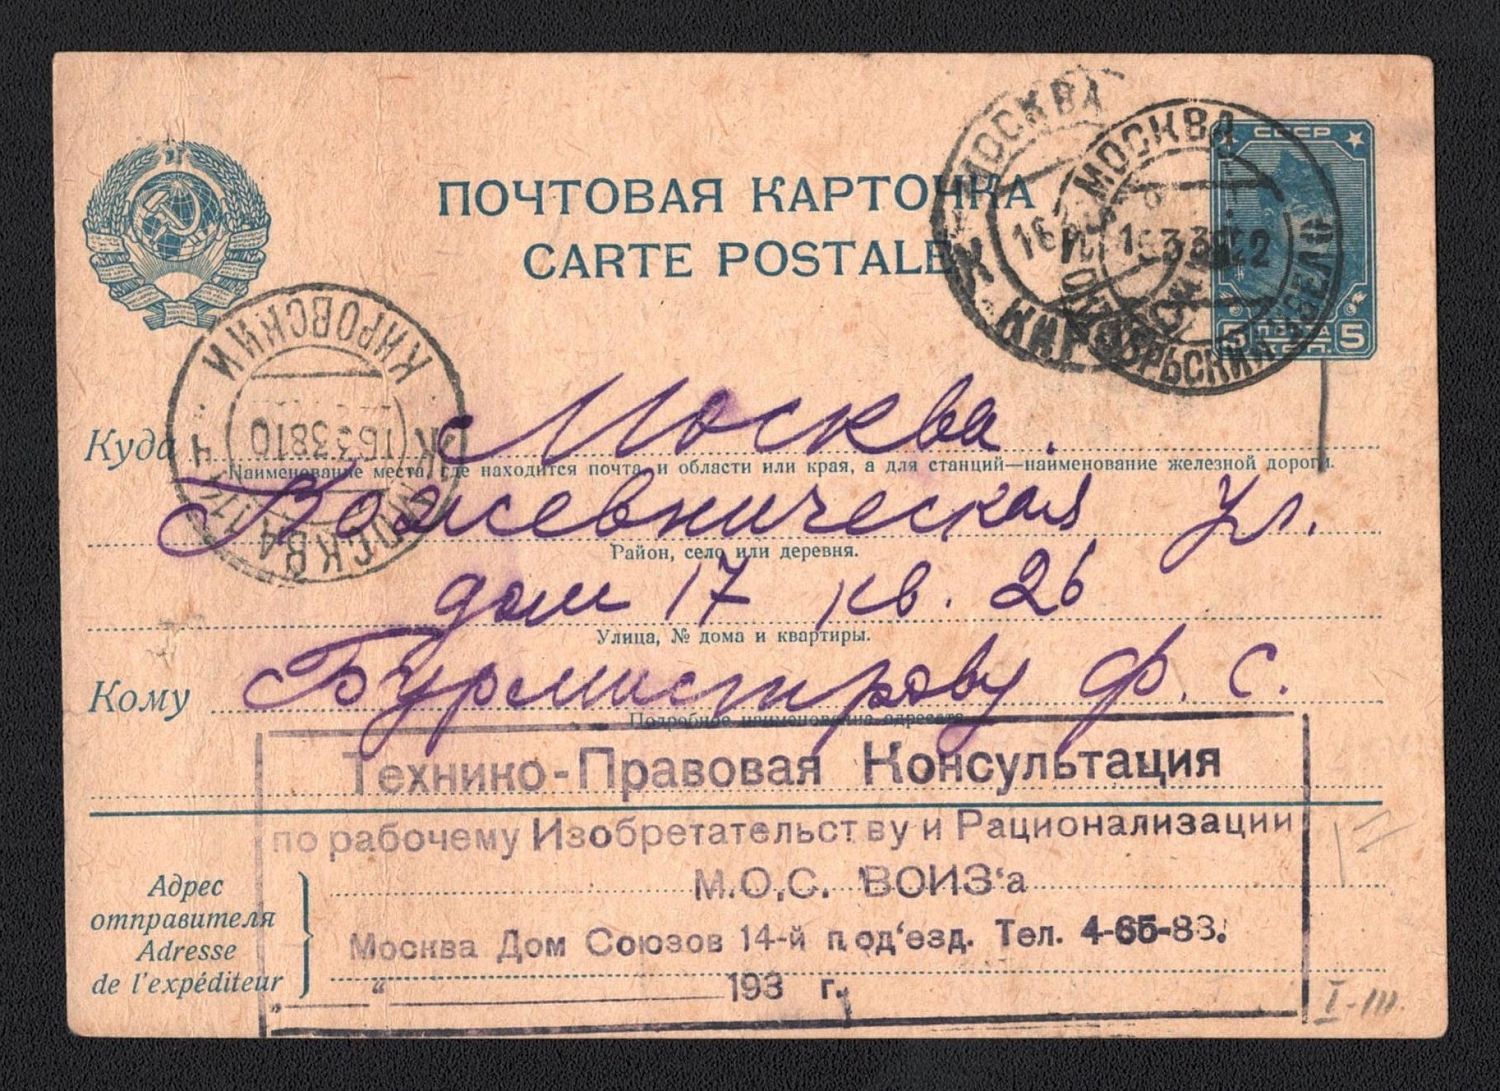 СССР
ПОЧТОВАЯ КАРТОЧКА
CARTE POSTALE
МОСКВА
МОСКВА
16
ОКТЯБРЬСКИЙ
ПОЧТА
5 КОП. 5
КИРОВСКИЙ
16 3 38 10
МОСКВА
Куда Москва.
Наименование места, где находится почта, и области или края, а для станций—наименование железной дороги.
Кожевническая ул.
Район, село или деревня.
дом 17 кв. 26
Улица, № дома и квартиры.
Кому Бурмистрову Ф. С.
Подробное наименование адресата
Технико-Правовая Консультация
по рабочему Изобретательству и Рационализации
М.О.С. ВОИЗ'а
Москва Дом Союзов 14-й под'езд. Тел. 4-65-83.
193 г.
Адрес
отправителя
Adresse
de l'expéditeur
I-III.